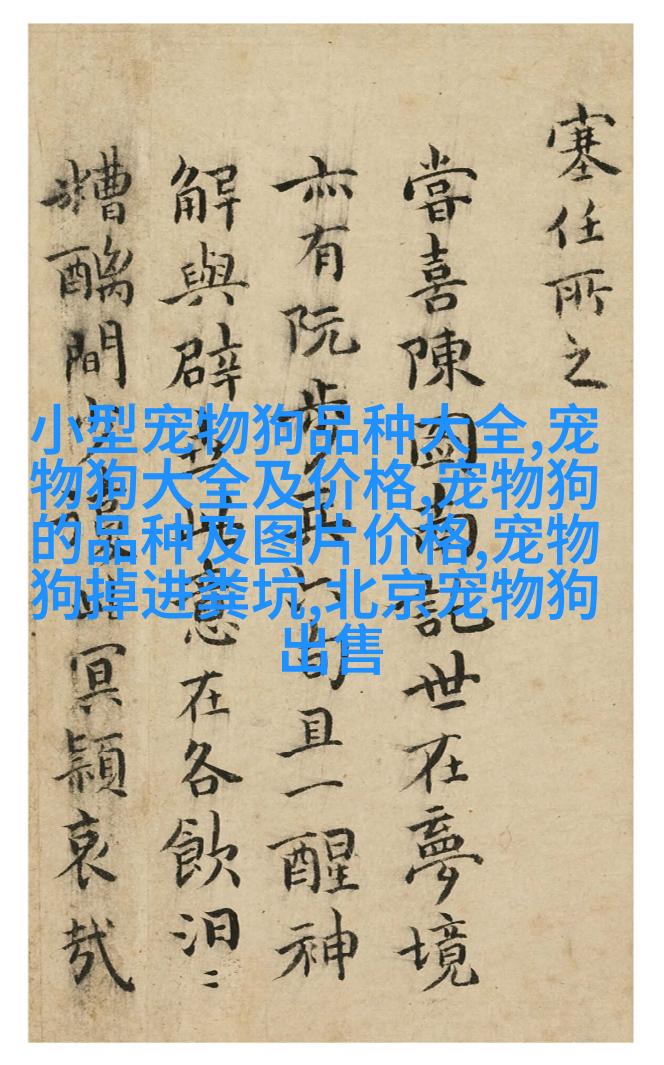 塞任所之
嘗喜陳南世在夢境
亦有阮步兵旬且一醒神
解與辟世意在各飲汨〻
糟醨間冥穎哀哉
小型宠物狗品种大全,宠
物狗大全及价格,宠物狗
的品种及图片价格,宠物
狗掉进粪坑,北京宠物狗
出售